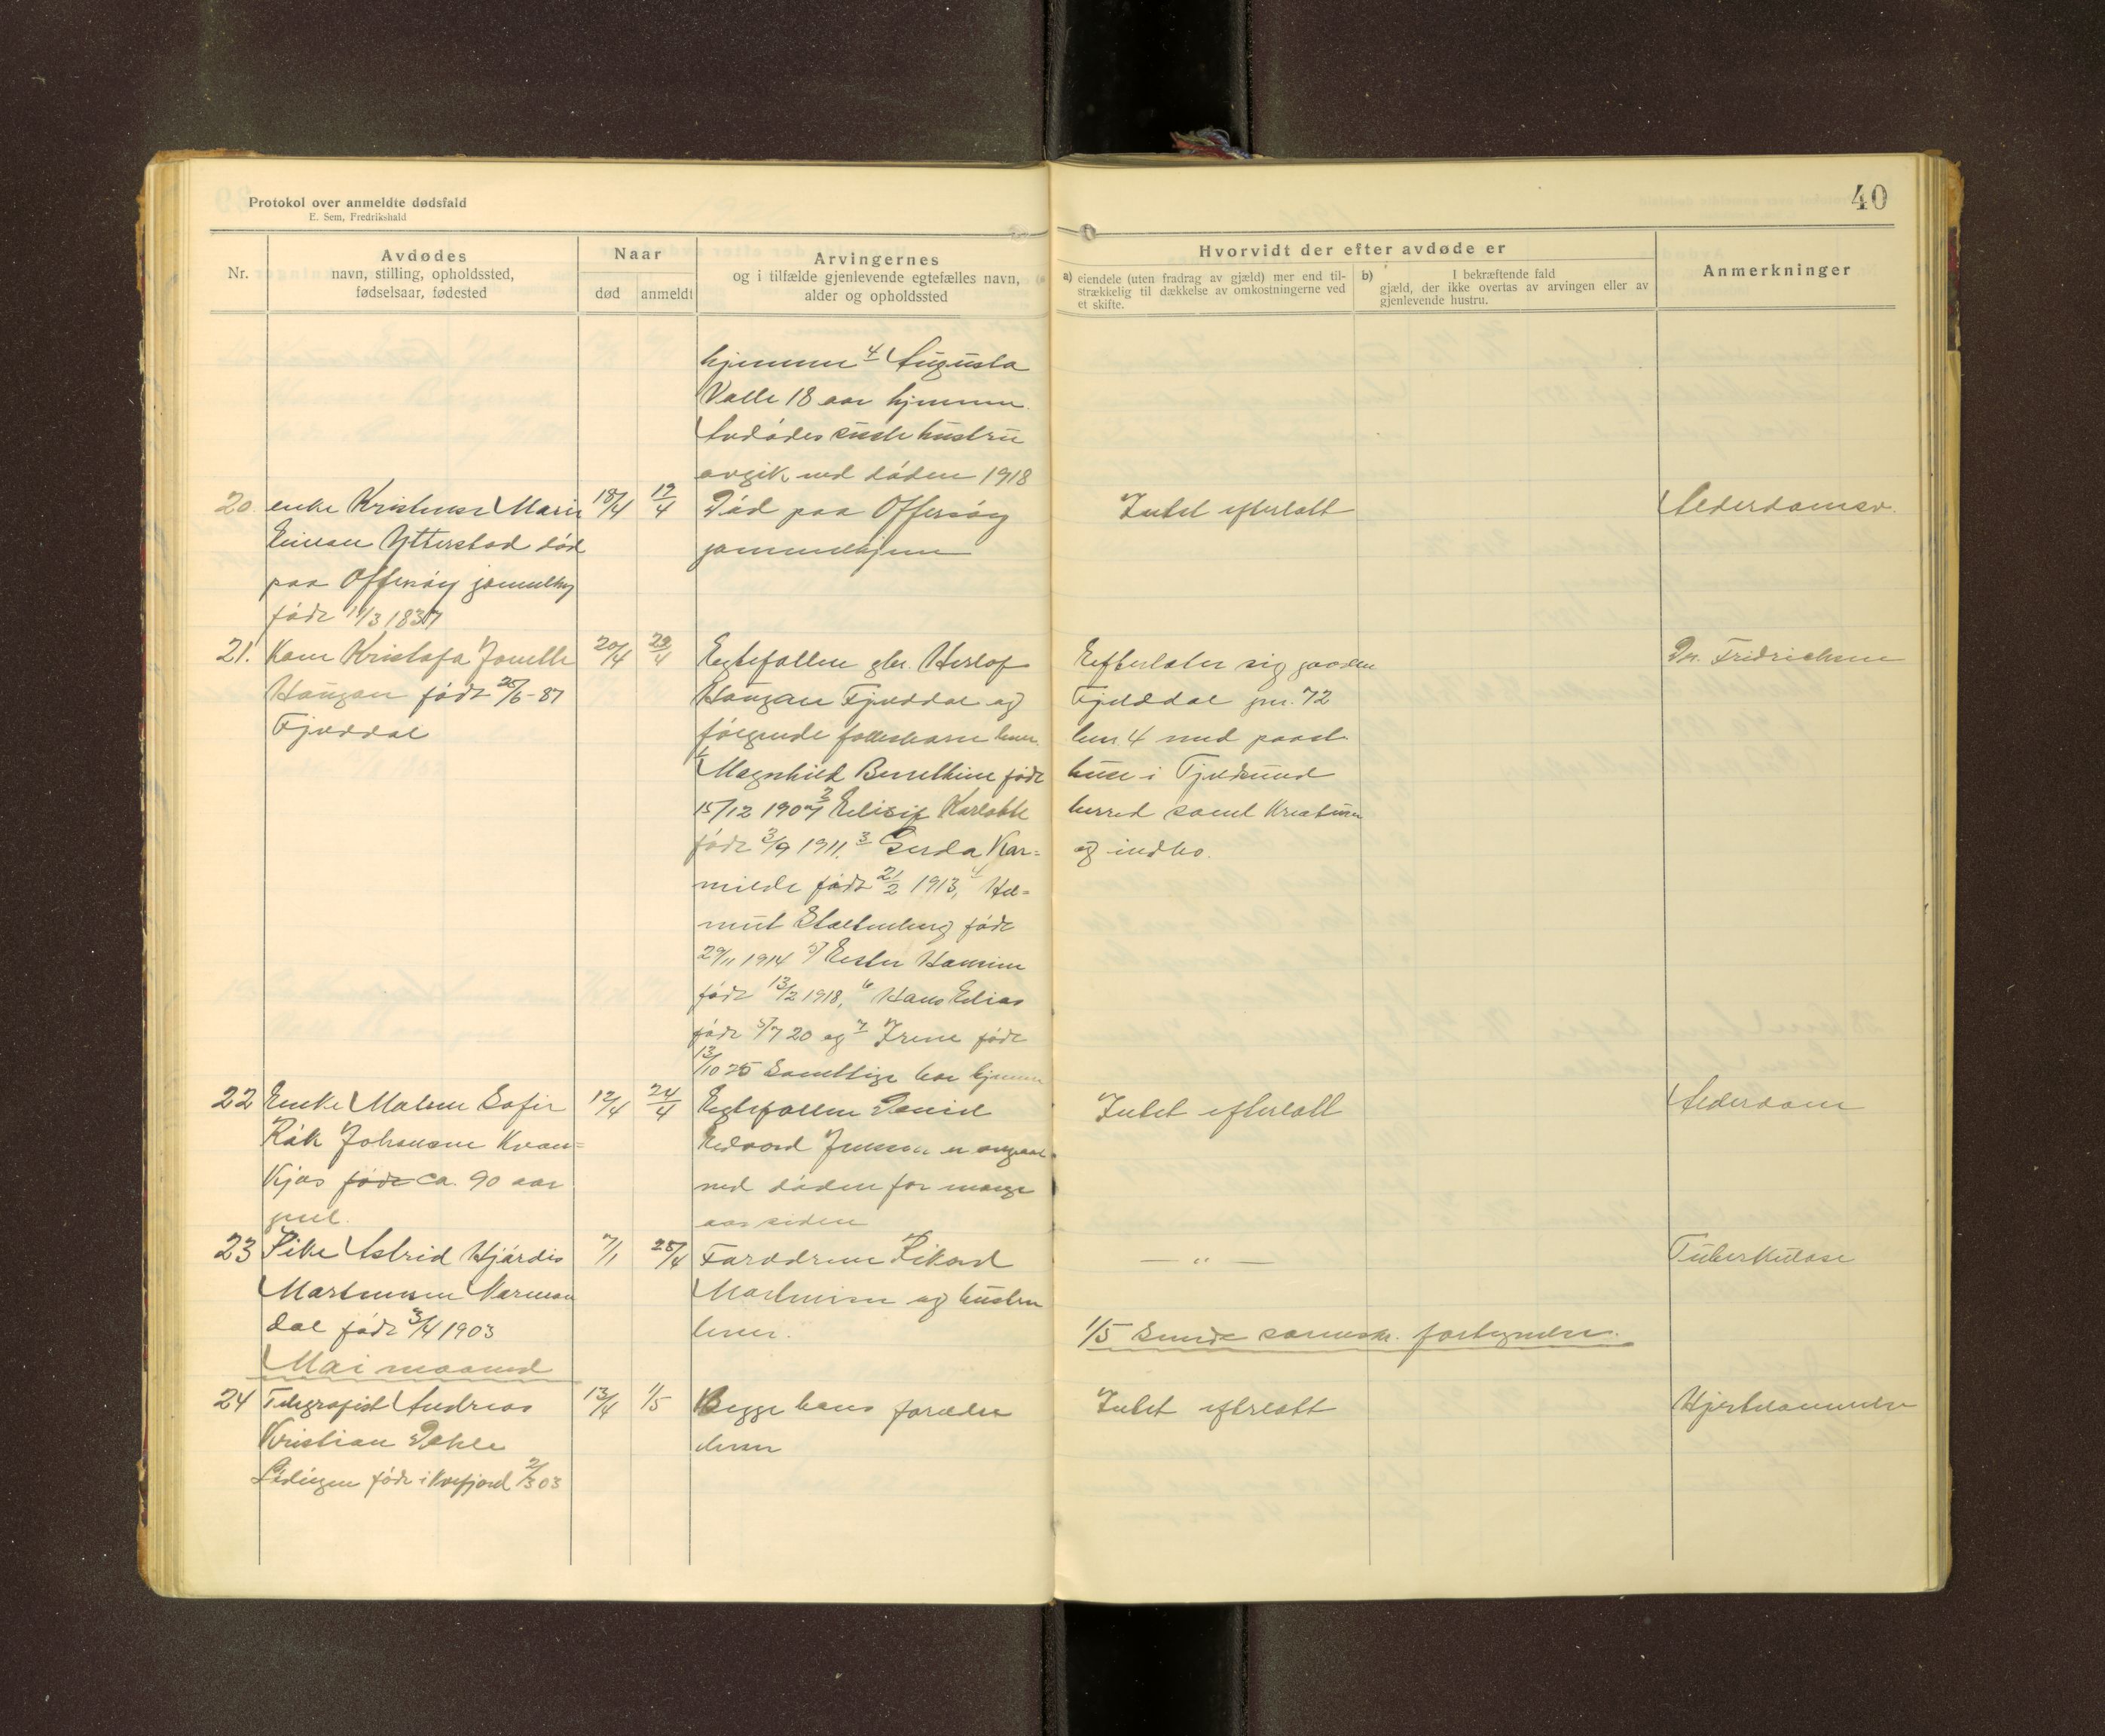 Protokol over anmeldte dødsfald
E. Sem, Fredrikshald
40
Nr.
Avdødes
navn, stilling, opholdssted,
fødselsaar, fødested
Naar
død
anmeldt
Arvingernes
og i tilfælde gjenlevende egtefælles navn,
alder og opholdssted
Hvorvidt der efter avdøde er
a) eiendele (uten fradrag av gjæld) mer end til-
strækkelig til dækkelse av omkostningerne ved
et skifte.
b) I bekræftende fald
gjæld, der ikke overtas av arvingen eller av
gjenlevende hustru.
Anmerkninger
hjemme 4 Augusta
Valle 18 aar hjemme.
Avdødes sidste hustru
avgik ved døden 1918
20. enke Kristense Marie 18/4 19/4 Død paa Offersøy Intet efterlatt Alderdomssv.
Ytterstad død gammelhjem
paa Offersøy gammelhj
født 11/3 1837
21. Kone Kristofa 20/4 29/4 Egtefællen gbr. Herlof Efterlater sig gaarden Dr. Fridrichsen
Haugan født 25/6-87 Haugan Fjelddal og Fjelddal gnr. 72
Fjelddal følgende fellesbarn lever. bnr. 4 med paast.
1 Magnhild født huse i Fjeldsund
15/12 1907 2 Elisif Karlotte herred samt kreaturer
født 3/9 1911, 3 Gerda Kar- og indbo.
milde født 21/2 1913, 4 Hel-
mut Stoltenberg født
29/11 1914 5 Ester Hansine
født 13/2 1918, 6 Hans Elias
født 5/7 20 og 7 Irene født
13/10 25 Samtlige bor hjemme
22 Enke Malene Sofie 12/4 24/4 Egtefællen Daniel Intet efterlatt Alderdom
Johansen Kvan- Edvard Jensen er avgaat
kjos født ca. 90 aar ved døden for mange
gml. aar siden
23 Pike Astrid Hjørdis 7/1 25/4 Forældrene Rikard — " — Tuberkulose
Martinsen Martinsen og hustru
dal født 3/4 1903 lever. 1/5 Sendt fortegnelse.
Mai maaned
24 Telegrafist Andreas 13/4 1/5 Begge hans forældre Intet efterlatt Hjertelammelse
Kristian Dahle lever
Lødingen født i Kvefjord 2/3 03